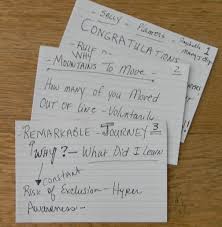 SALLY -
1
CONGRATULATIONS
- RULE
WHY
MOUNTAINS To Move -
2
How many of you Moved
Out of Line - Voluntarily
REMARKABLE - JOURNEY 3
WHY? - What Did I Learn
constant
Risk of Exclusion - Hyper
Awareness -